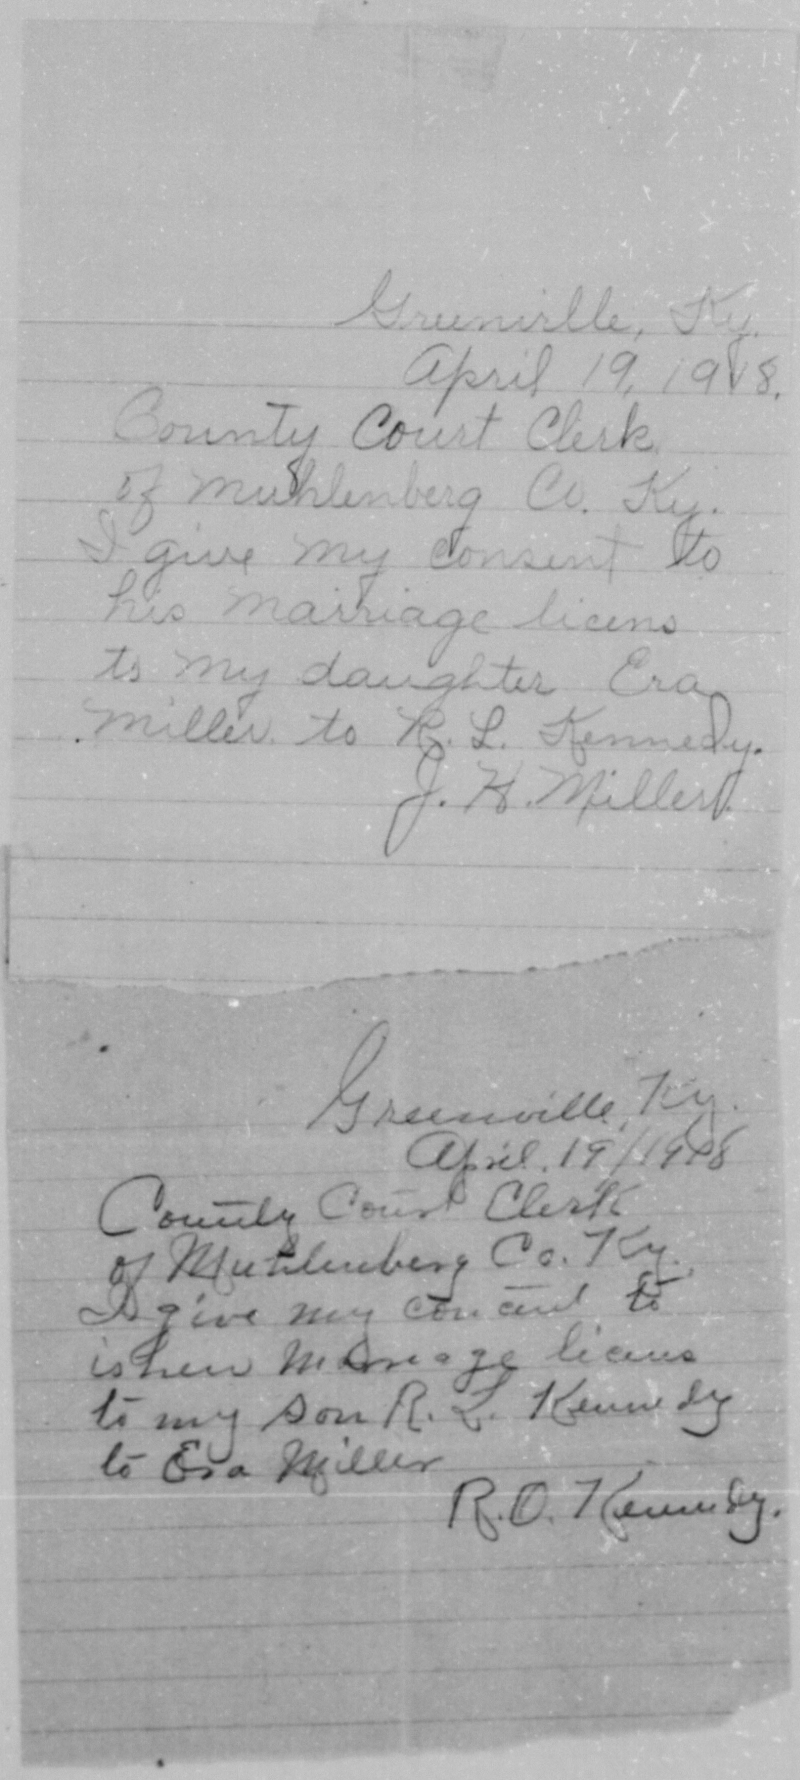 Greenville, Ky.
April 19, 1918.
County Court Clerk
of Muhlenberg Co. Ky.
I give my consent to
his marriage licens
to my daughter Era
Miller to R. L. Kennedy.
J. H. Miller.
Greenville, Ky.
April. 19/1918
County Court Clerk
of Muhlenberg Co. Ky.
I give my concent to
marrage licens
to my son R. L. Kennedy
to Era Miller
R. O. Kennedy.